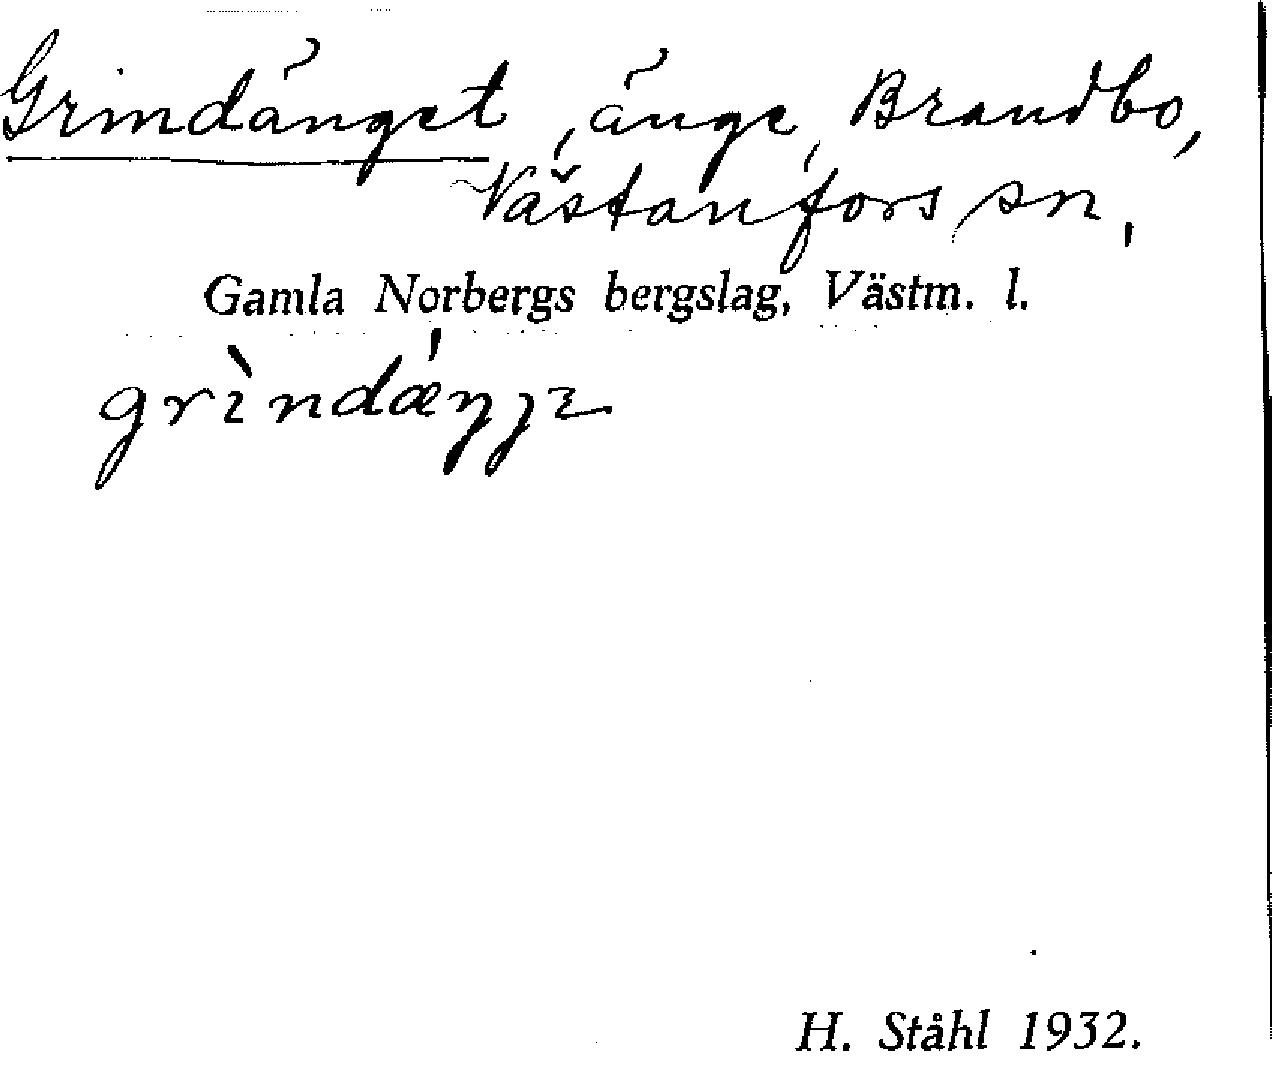 Grindänget, änge, Brandbo,
Västanfors sn,
Gamla Norbergs bergslag, Västm. l.
grìndæ̍ŋɟɛ
H. Ståhl 1932.